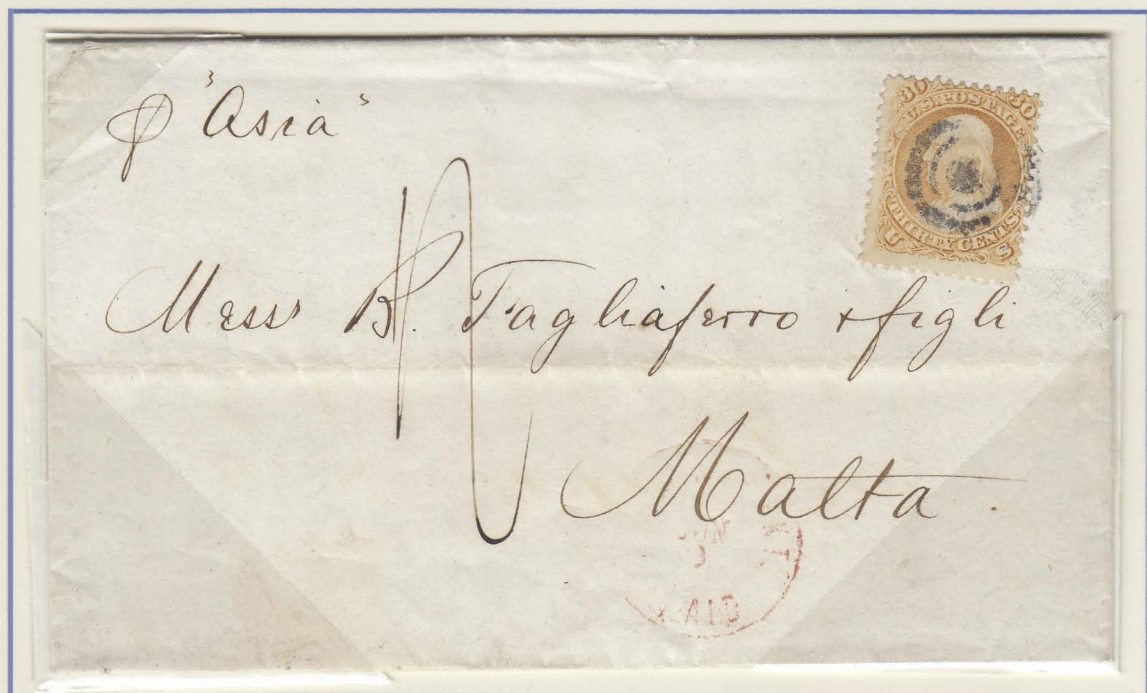 p "Asia"
30 30
U.S. POSTAGE
THIRTY CENTS
U S
Messrs B. Tagliaferro & figli
Malta.
AID